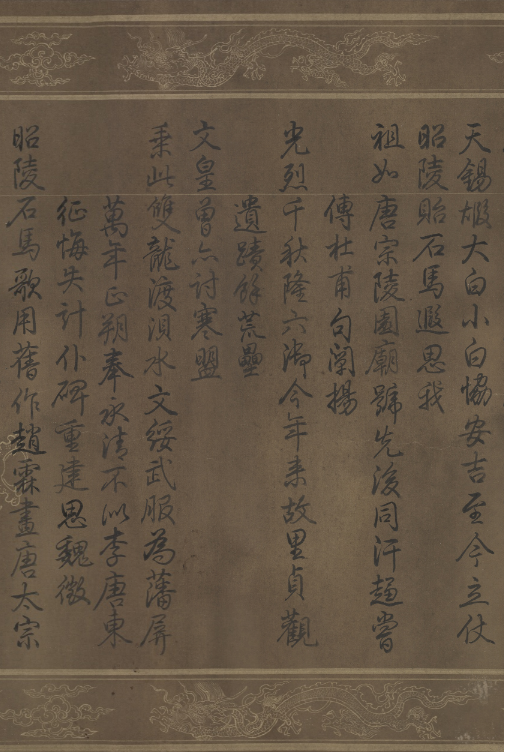 天錫雄大白小白恊安吉至今立仗
昭陵貽石馬遐思我
祖如唐宗陵園廟號先後同汗趨嘗
傳杜甫句闡揚
光烈千秋隆六御今年来故里貞觀
遺蹟餘荒壘
文皇曽亦討寒盟
乗此雙龍渡浿水文綏武服為藩屏
萬年正朔奉永清不似李唐東
征悔失計仆碑重建思魏徵
昭陵石馬歌用舊作趙霖畫唐太宗